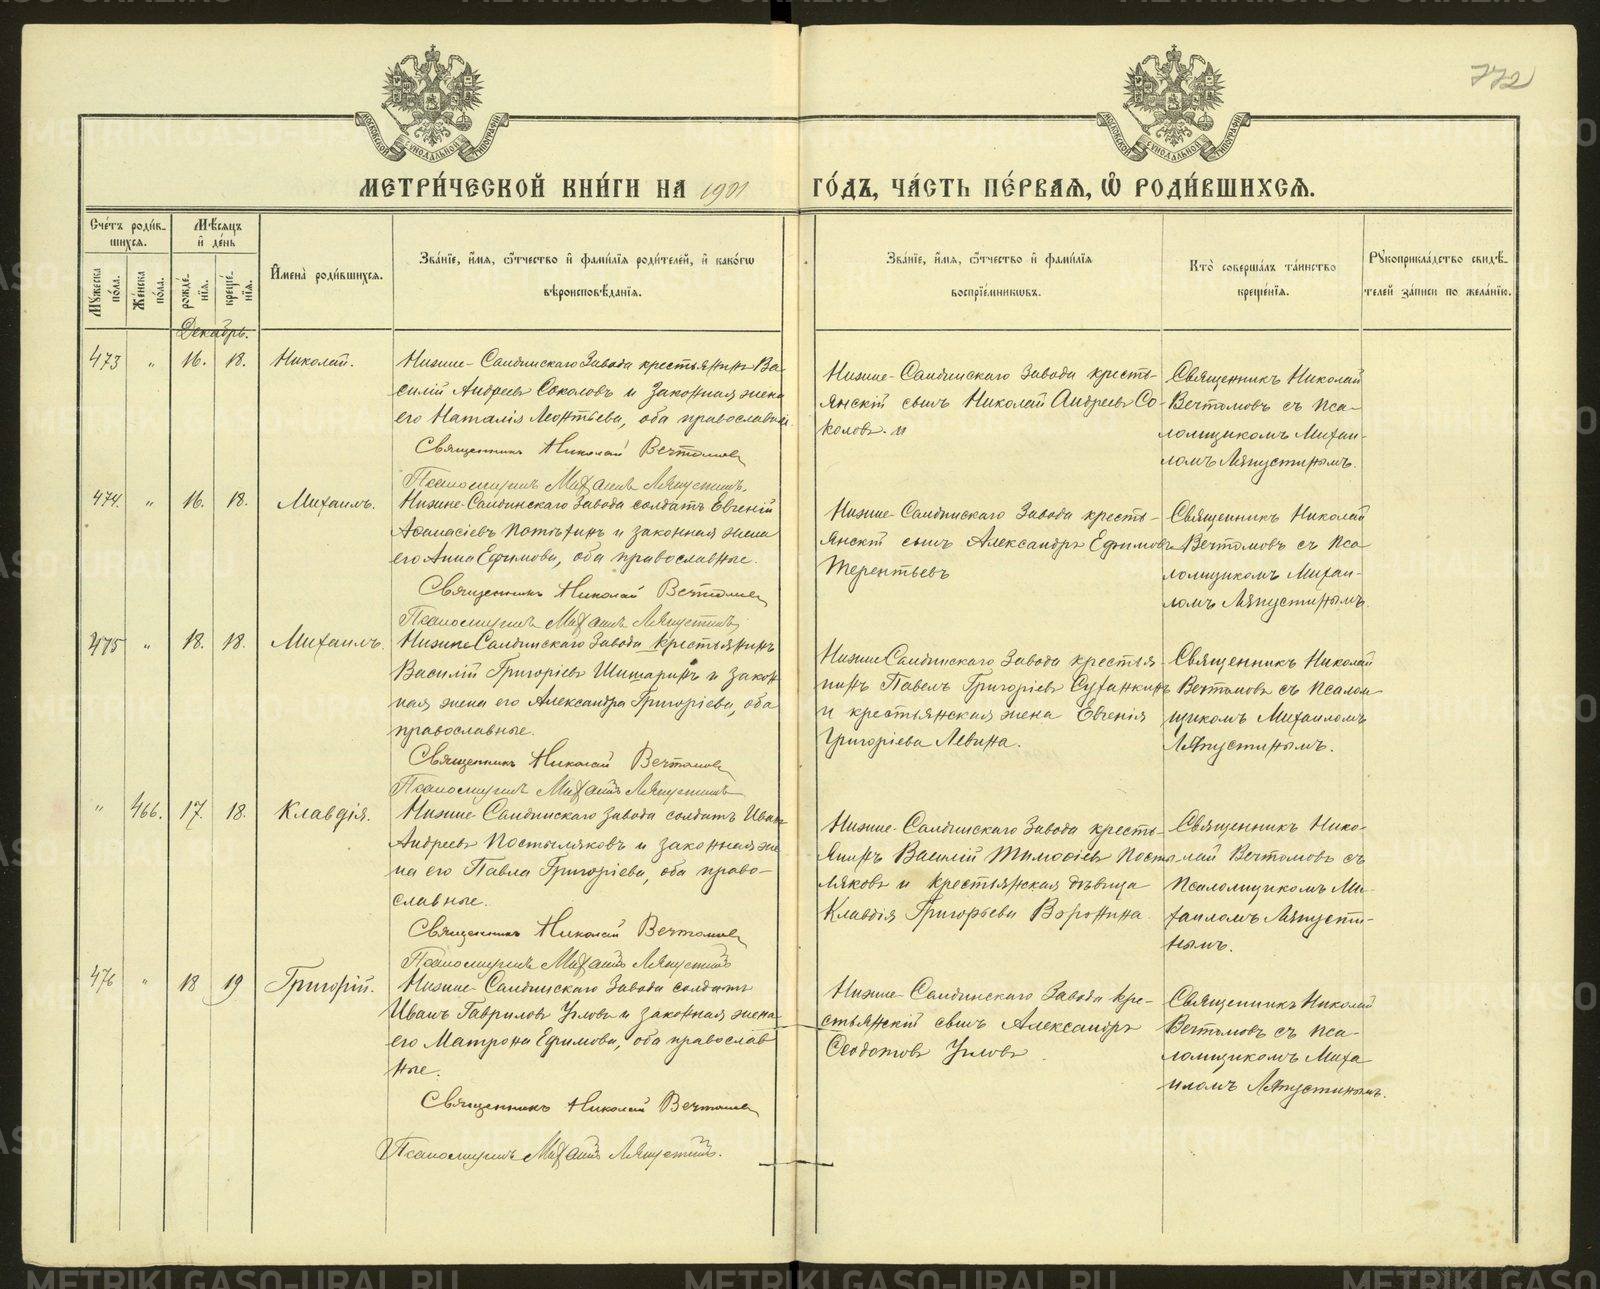 772
МОСКОВСКОЙ СѴНОДАЛЬНОЙ ТИПОГРАФІИ
МОСКОВСКОЙ СѴНОДАЛЬНОЙ ТИПОГРАФІИ
МЕТРИ́ЧЕСКОЙ КНИ́ГИ НА 1901 ГО́ДЪ, ЧА́СТЬ ПЕ́РВАѦ, Ѡ҆ РОДИ́ВШИХСѦ.
Счётъ роди́в-
шихсѧ.
Мꙋ́жеска по́ла.
Же́нска по́ла.
Мѣ́сѧцъ
и҆ де́нь
рожде́нїѧ.
креще́нїѧ.
И҆мена̀ роди́вшихсѧ.
Зва́нїе, и҆́мѧ, ѻ҆́тчество и҆ фами́лїѧ роди́телей, и҆ како́гѡ
вѣроисповѣ́данїѧ.
Зва́нїе, и҆́мѧ, ѻ҆́тчество и҆ фами́лїѧ
воспрїе́мникѡвъ.
Кто̀ соверша́лъ та́инство
креще́нїѧ.
Рꙋкоприкла́дство свидѣ́-
телей за́писи по жела́нїю.
Декабрь.
473 " 16. 18. Николай.
Нижне-Салдинскаго Завода крестьянинъ Ва-
силій Андреевъ Соколовъ и законная жена
его Наталія Леонтьева, оба православные
Священникъ Николай Вечтомовъ
Псаломщикъ Михаилъ Ляпустинъ.
Нижне-Салдинскаго Завода кресть-
янскій сынъ Николай Андреевъ Со-
коловъ. и
Священникъ Николай
Вечтомовъ съ пса-
ломщикомъ Михаи-
ломъ Ляпустинымъ.
474. " 16. 18. Михаилъ.
Нижне-Салдинскаго Завода солдатъ Евгеній
Аѳанасіевъ Потѣхинъ и законная жена
его Анна Ефимова, оба православные.
Священникъ Николай Вечтомовъ
Псаломщикъ Михаилъ Ляпустинъ
Нижне-Салдинскаго Завода кресть-
янскій сынъ Александръ Ефимовъ
Терентьевъ
Священникъ Николай
Вечтомовъ съ пса
ломщикомъ Михаи-
ломъ Ляпустинымъ.
475 " 18. 18. Михаилъ.
Нижне Салдинскаго Завода крестьянинъ
Василій Григоріевъ Шишаринъ и закон
ная жена его Александра Григоріева, оба
православные.
Священникъ Николай Вечтомовъ
Псаломщикъ Михаилъ Ляпустинъ
Нижне Салдинскаго Завода крестья-
нинъ Павелъ Григоріевъ Суханкинъ
и крестьянская жена Евгенія
Григоріева Левина.
Священникъ Николай
Вечтомовъ съ псалом-
щикомъ Михаиломъ
Ляпустинымъ.
" 466. 17. 18. Клавдія.
Нижне-Салдинскаго завода солдатъ Иванъ
Андреевъ Постыляковъ и законная же
на его Павла Григоріева, оба право-
славные.
Священникъ Николай Вечтомовъ
Псаломщикъ Михаилъ Ляпустинъ
Нижне-Салдинскаго Завода кресть-
янинъ Василій Тимоѳіевъ Посты-
ляковъ и крестьянская дѣвица
Клавдія Григорьева Воронина
Священникъ Нико-
лай Вечтомовъ съ
псаломщикомъ Ми-
хаиломъ Ляпусти-
нымъ.
476 " 18 19 Григорій.
Нижне-Салдинскаго Завода солдатъ
Иванъ Гавриловъ Угловъ и законная жена
его Матрона Ефимова, оба православ
ные.
Священникъ Николай Вечтомовъ
Псаломщикъ Михаилъ Ляпустинъ.
Нижне-Салдинскаго Завода кре-
стьянскій сынъ Александръ
Ѳеодотовъ Угловъ
Священникъ Николай
Вечтомовъ съ пса-
ломщикомъ Миха
иломъ Ляпустинымъ.
METRIKI.GASO-URAL.RU